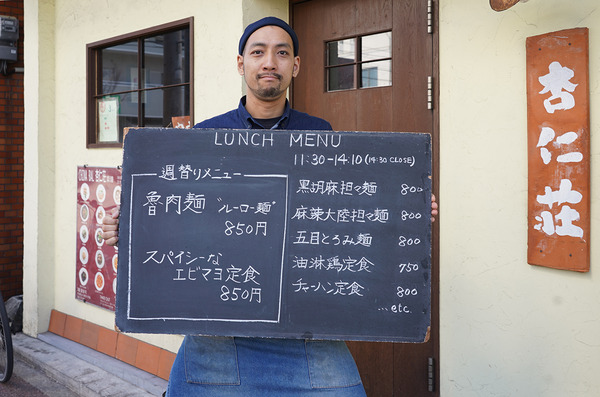 LUNCH MENU
11:30-14:10 (14:30 CLOSE)
週替りメニュー
魯肉麺 "ルーロー麺"
850円
スパイシーな
エビマヨ定食
850円
黒胡麻担々麺 800
麻薬大陸担々麺 800
五目とろみ麺 800
油淋鶏定食 750
チャーハン定食 800
...etc
杏仁荘